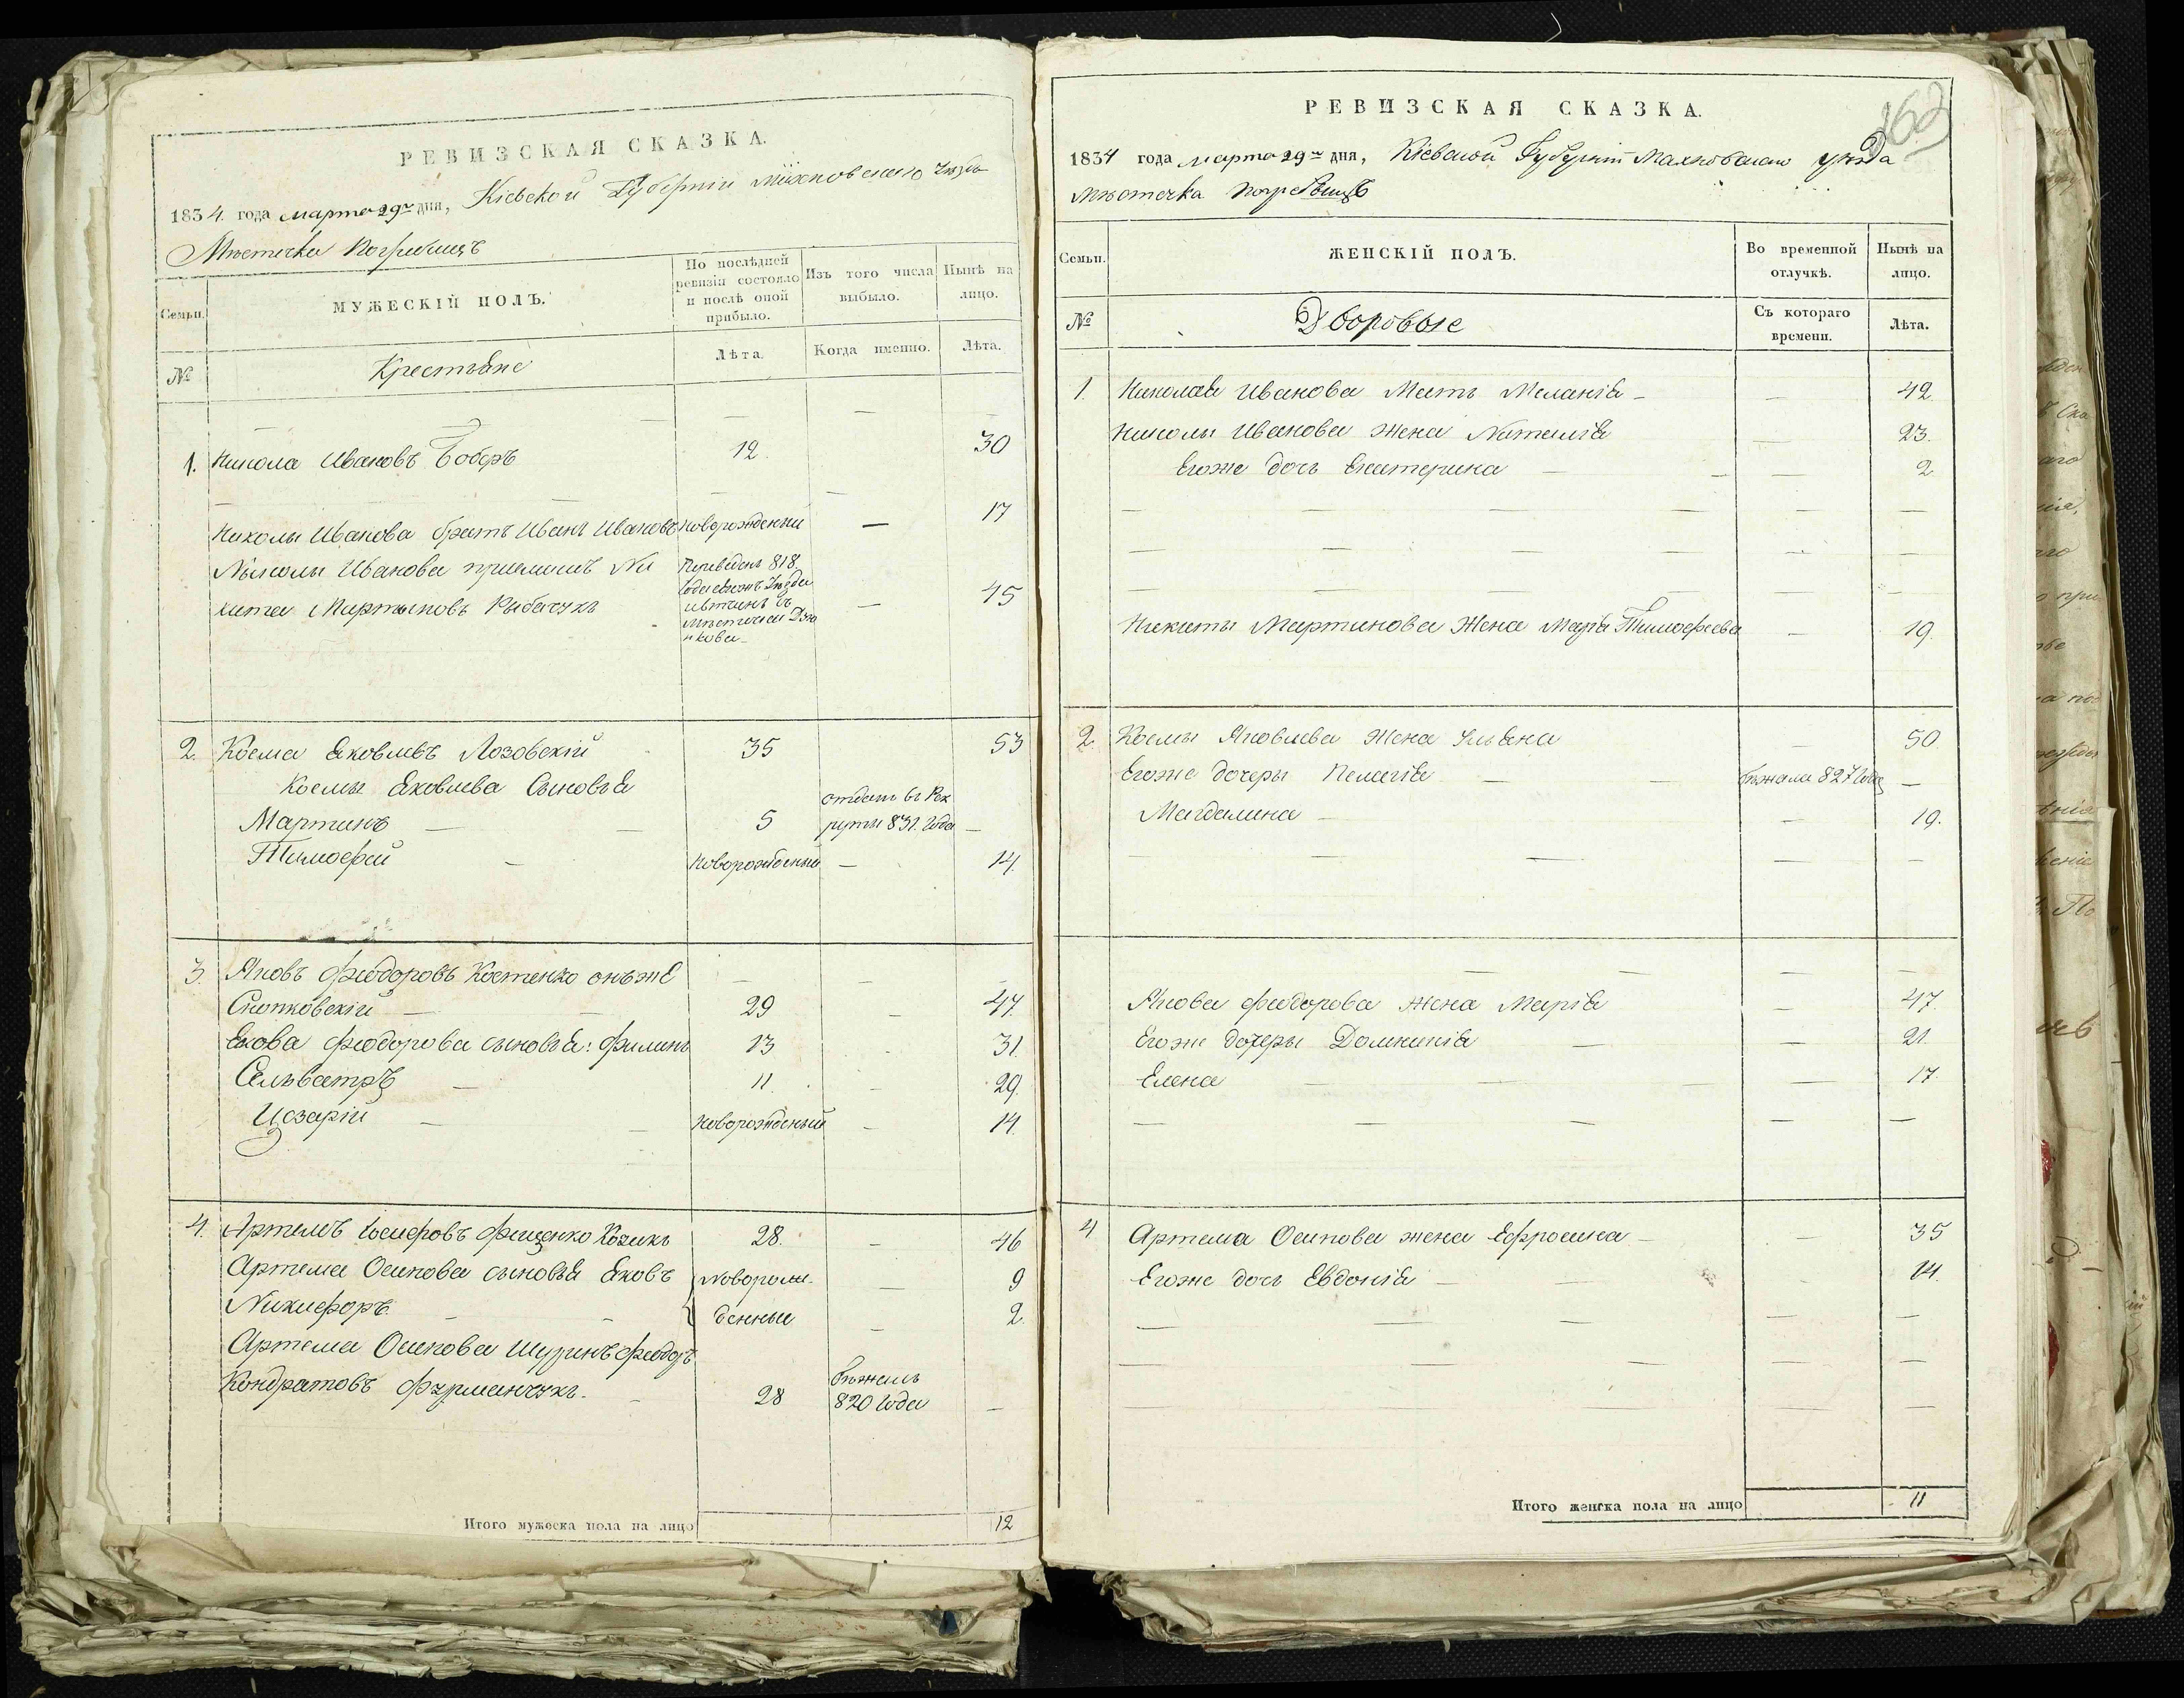 РЕВИЗСКАЯ СКАЗКА.
1834. года марта 29го дня, Кіевской Губерніи Махновского уѣзда
Мѣстечка Погребищъ
Семьи.
МУЖЕСКІЙ ПОЛЪ.
По послѣдней
ревизіи состояло
и послѣ оной
прибыло.
Изъ того числа
выбыло.
Нынѣ на
лицо.
№
Крестьяне
Лѣта.
Когда именно.
Лѣта.
1. Никола Ивановъ Боберъ 12. 30
Николы Иванова братъ Иванъ Ивановъ новорожденный — 17
Николы Иванова приемышъ Ни Переведенъ 818.
кита Мартыновъ Рыбачукъ — 45
2. Косма Яковлевъ Лозовскій 35 53
Космы Яковлева Сыновья
Мартинъ — 5 отданъ въ Рек
руты 831. года —
Тимофей — новорожденный — 14.
3. Яковъ Феодоровъ Костенко онъ же
Снопковскій — 29 — 47.
Якова Феодорова сыновья: Филипъ 13 31.
Сельвестръ — 11. — 29.
Цезарій — новорожденый — 14.
4. Артемъ Іосифовъ Фещенко Козикъ 28. — 46
Артема Осипова сыновья Яковъ новорож- — 9
Никифоръ — денные — 2.
Артема Осипова Шуринъ Феодоръ
Кондратовъ Фурманчукъ. — 28 бѣжалъ
820 года —
Итого мужеска пола на лицо 12
162
РЕВИЗСКАЯ СКАЗКА.
1834 года марта 29го дня, Кіевской Губерніи Махновского уѣзда
Мѣстечка Погребищъ
Семьи.
ЖЕНСКІЙ ПОЛЪ.
Во временной
отлучкѣ.
Нынѣ на
лицо.
№
Дворовые
Съ котораго
времени.
Лѣта.
1. Николая Иванова Мать Меланія — — 42.
Николы Иванова жена Наталія — 23.
Егоже дочь Екатерина — — 2.
Никиты Мартинова Жена Марія Тимофеева — 19.
2. Космы Яковлева Жена Ульяна — 50.
Егоже дочеры Пелагія — — бѣжала 827 года —
Магдалина — — 19.
Якова Феодорова жена Марія — 47.
Егоже дочеры Домникія — — 21.
Елена — — 17.
4 Артема Осипова жена Ефросина — — 35
Егоже дочь Евдокія — — 14.
Итого женска пола на лицо 11